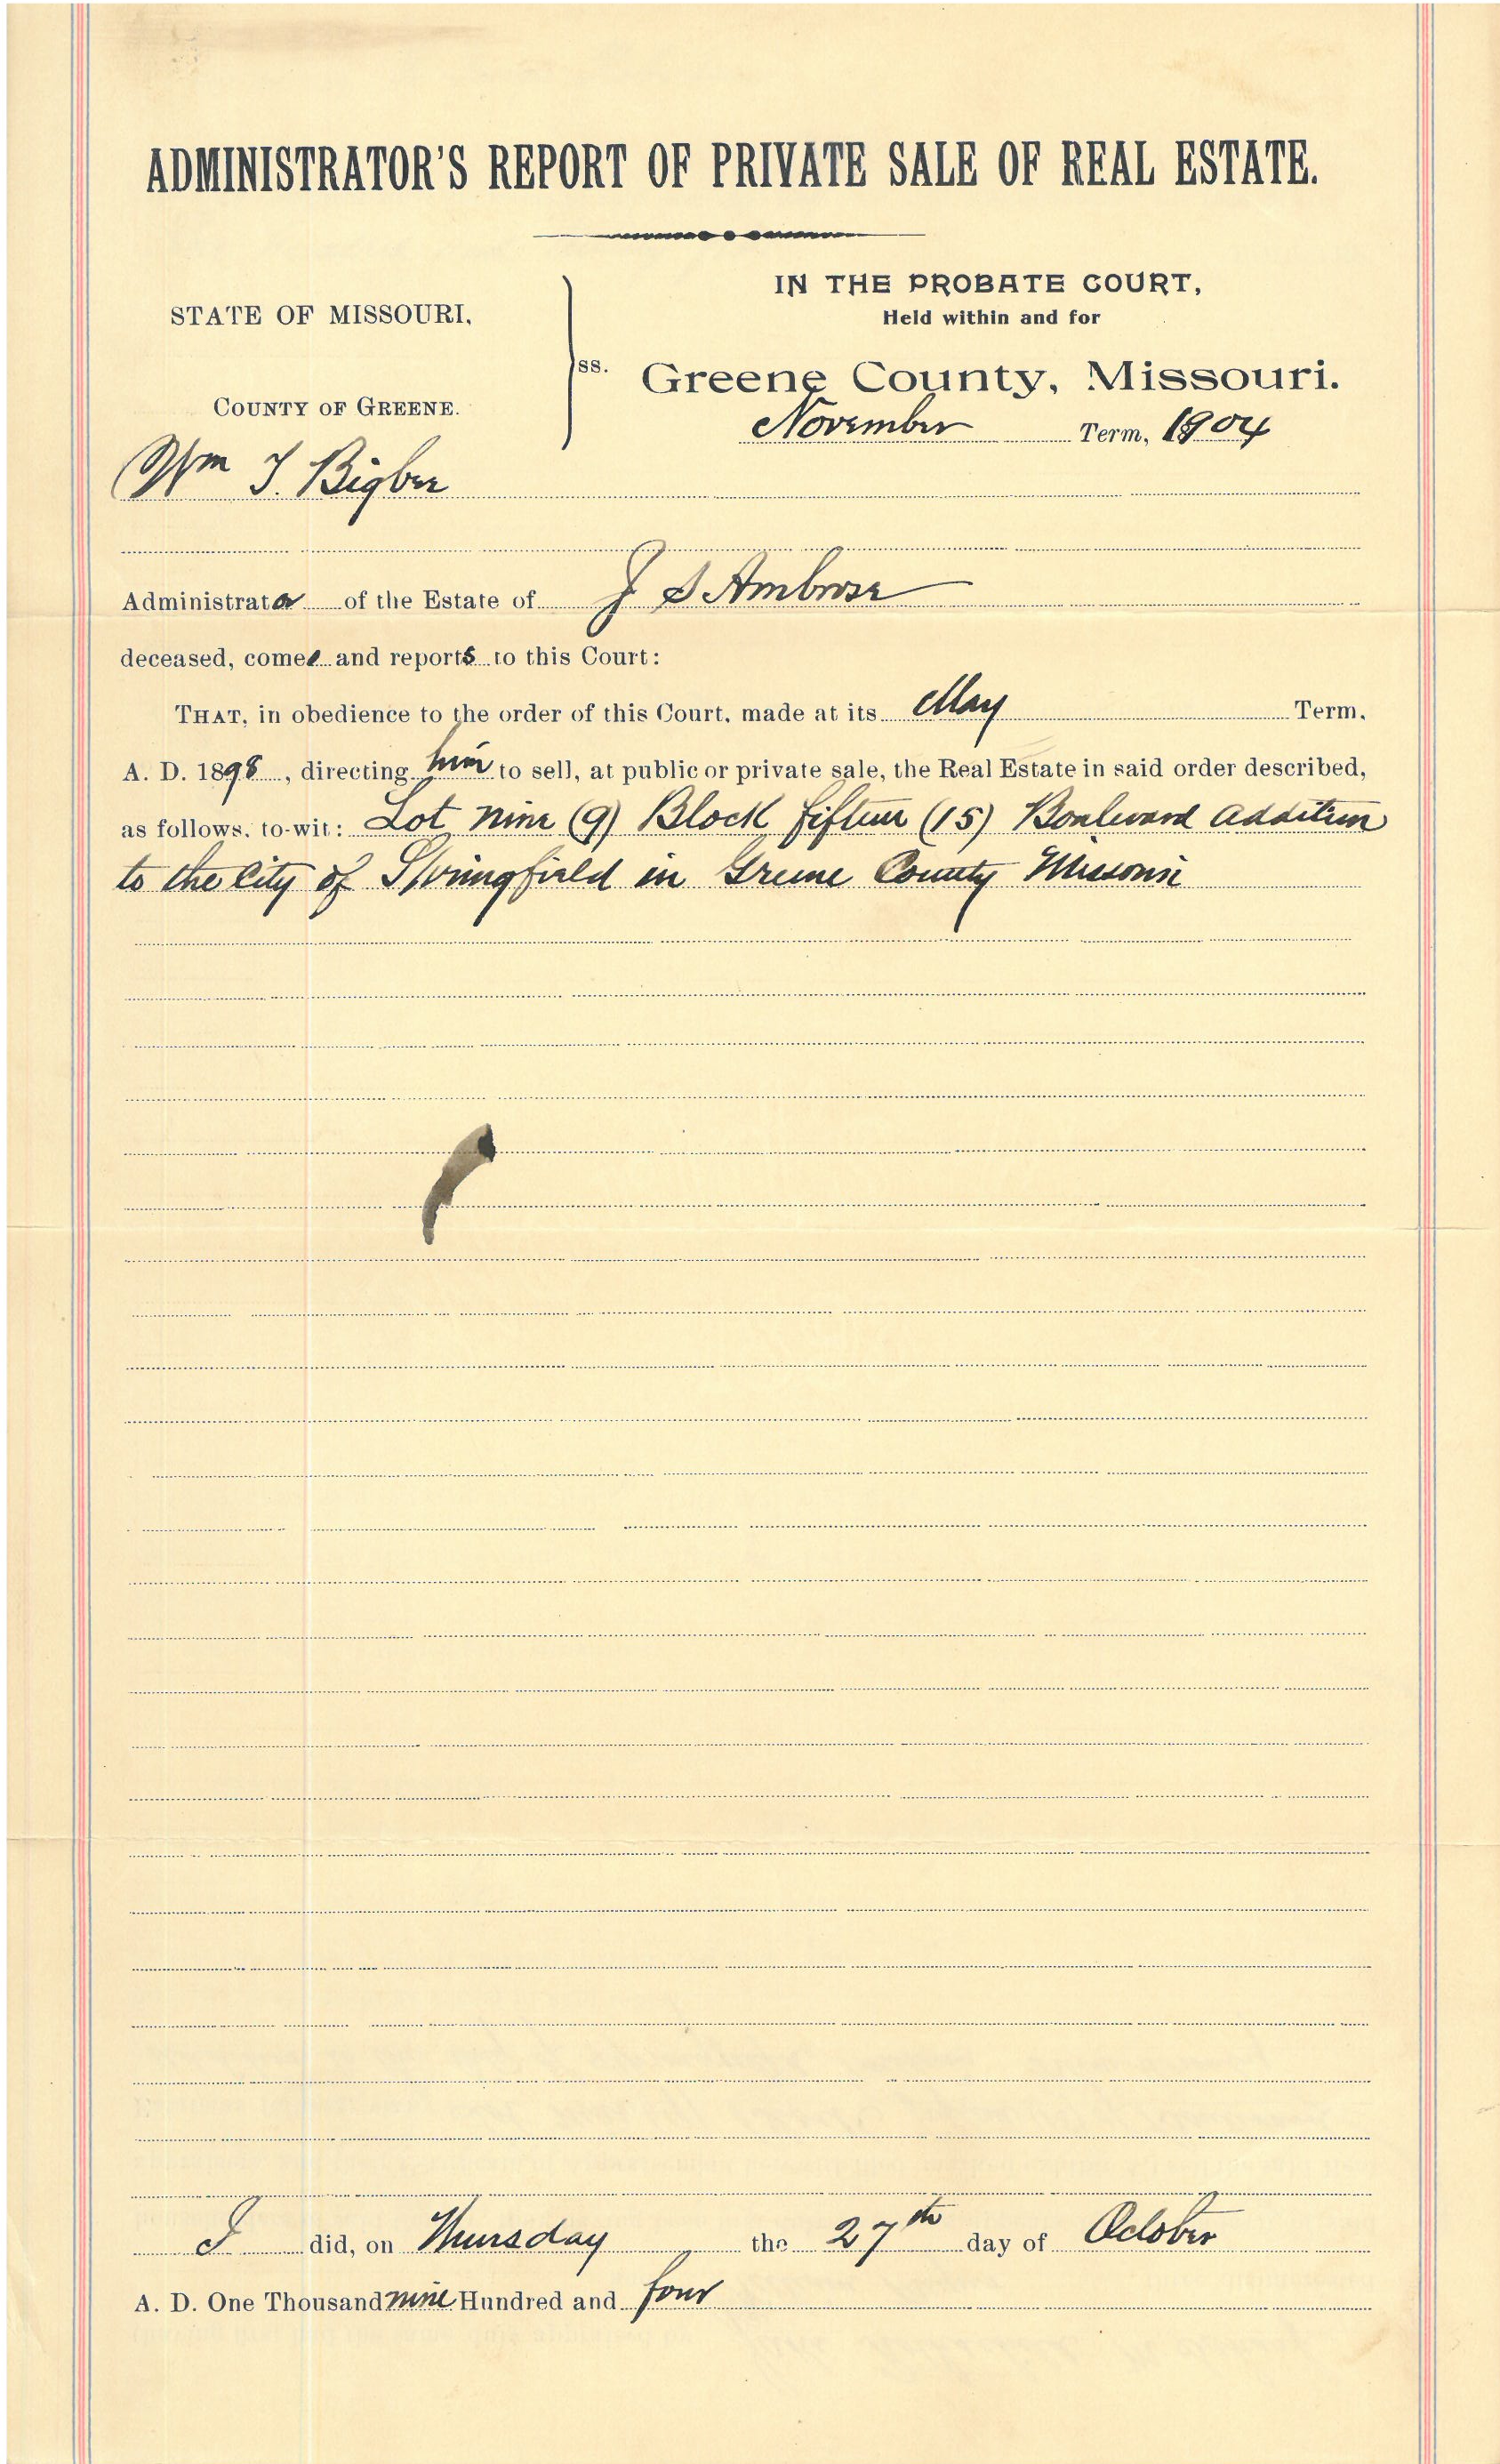 ADMINISTRATOR'S REPORT OF PRIVATE SALE OF REAL ESTATE.
IN THE PROBATE COURT,
STATE OF MISSOURI,
Held within and for
ss.
Greene County, Missouri.
COUNTY OF GREENE.
November Term, 1904
Wm T. Bigbee
Administrator of the Estate of J S Ambrose
deceased, comes and reports to this Court:
THAT, in obedience to the order of this Court, made at its May Term,
A. D. 1898, directing him to sell, at public or private sale, the Real Estate in said order described,
as follows, to-wit: Lot nine (9) Block fifteen (15) Boulevard addition
to the City of Springfield in Greene County Missouri
I did, on Thursday the 27th day of October
A. D. One Thousand nine Hundred and four